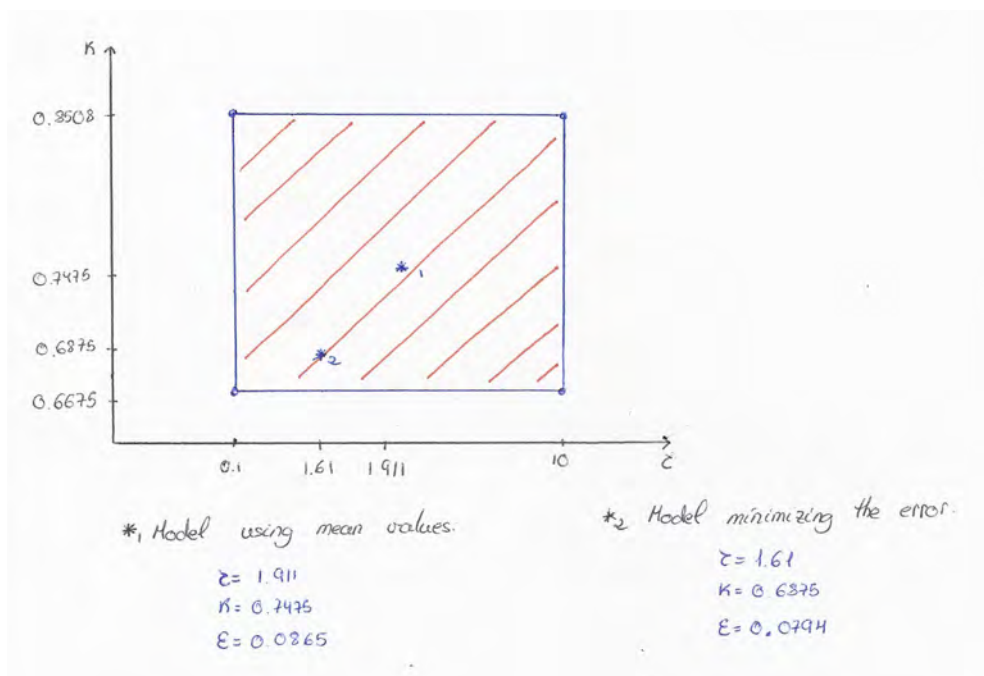 K
0.8508
0.7475
0.6875
0.6675
0.1 1.61 1.911 10 τ
*1
*2
*1 Model using mean values.
τ= 1.911
K= 0.7475
ε= 0.0865
*2 Model minimizing the error.
τ= 1.61
K= 0.6875
ε= 0.0794